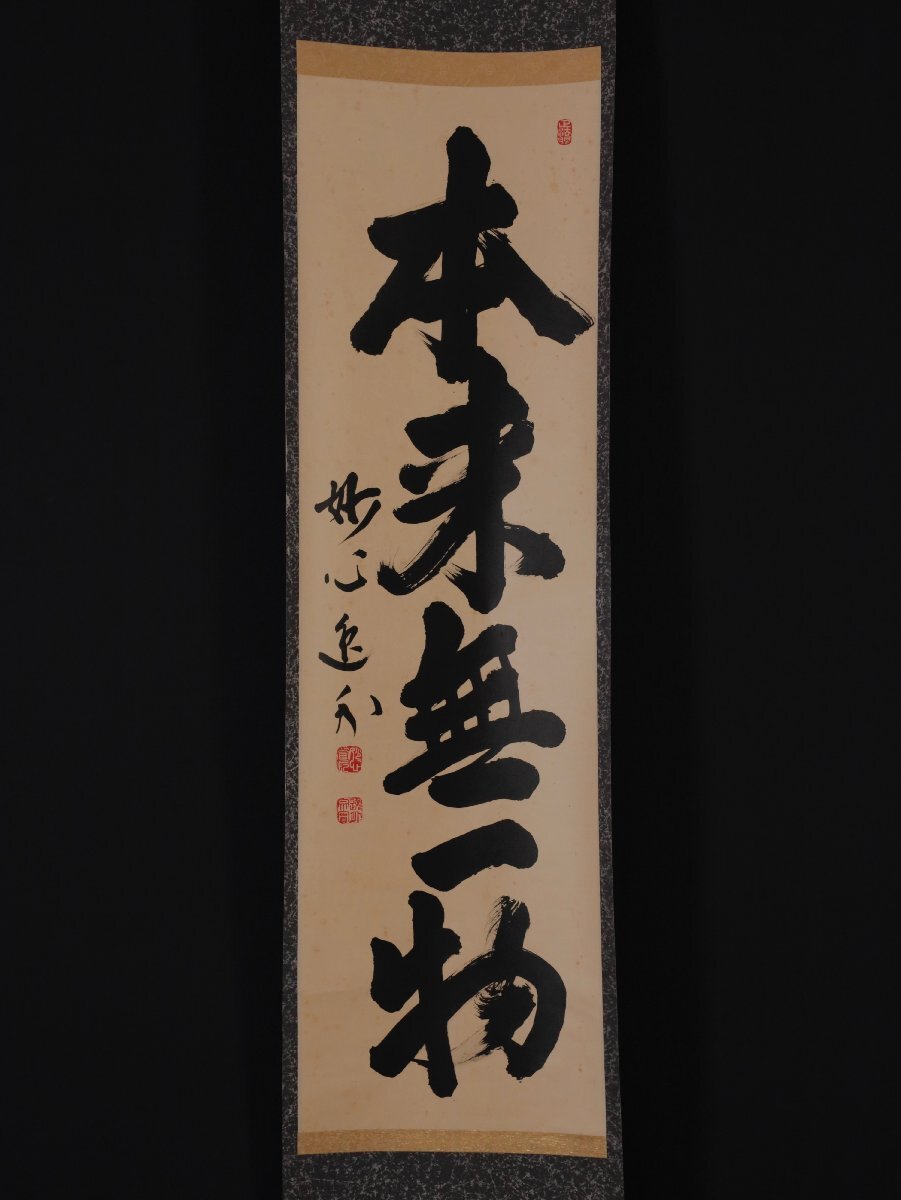 本来無一物
妙心